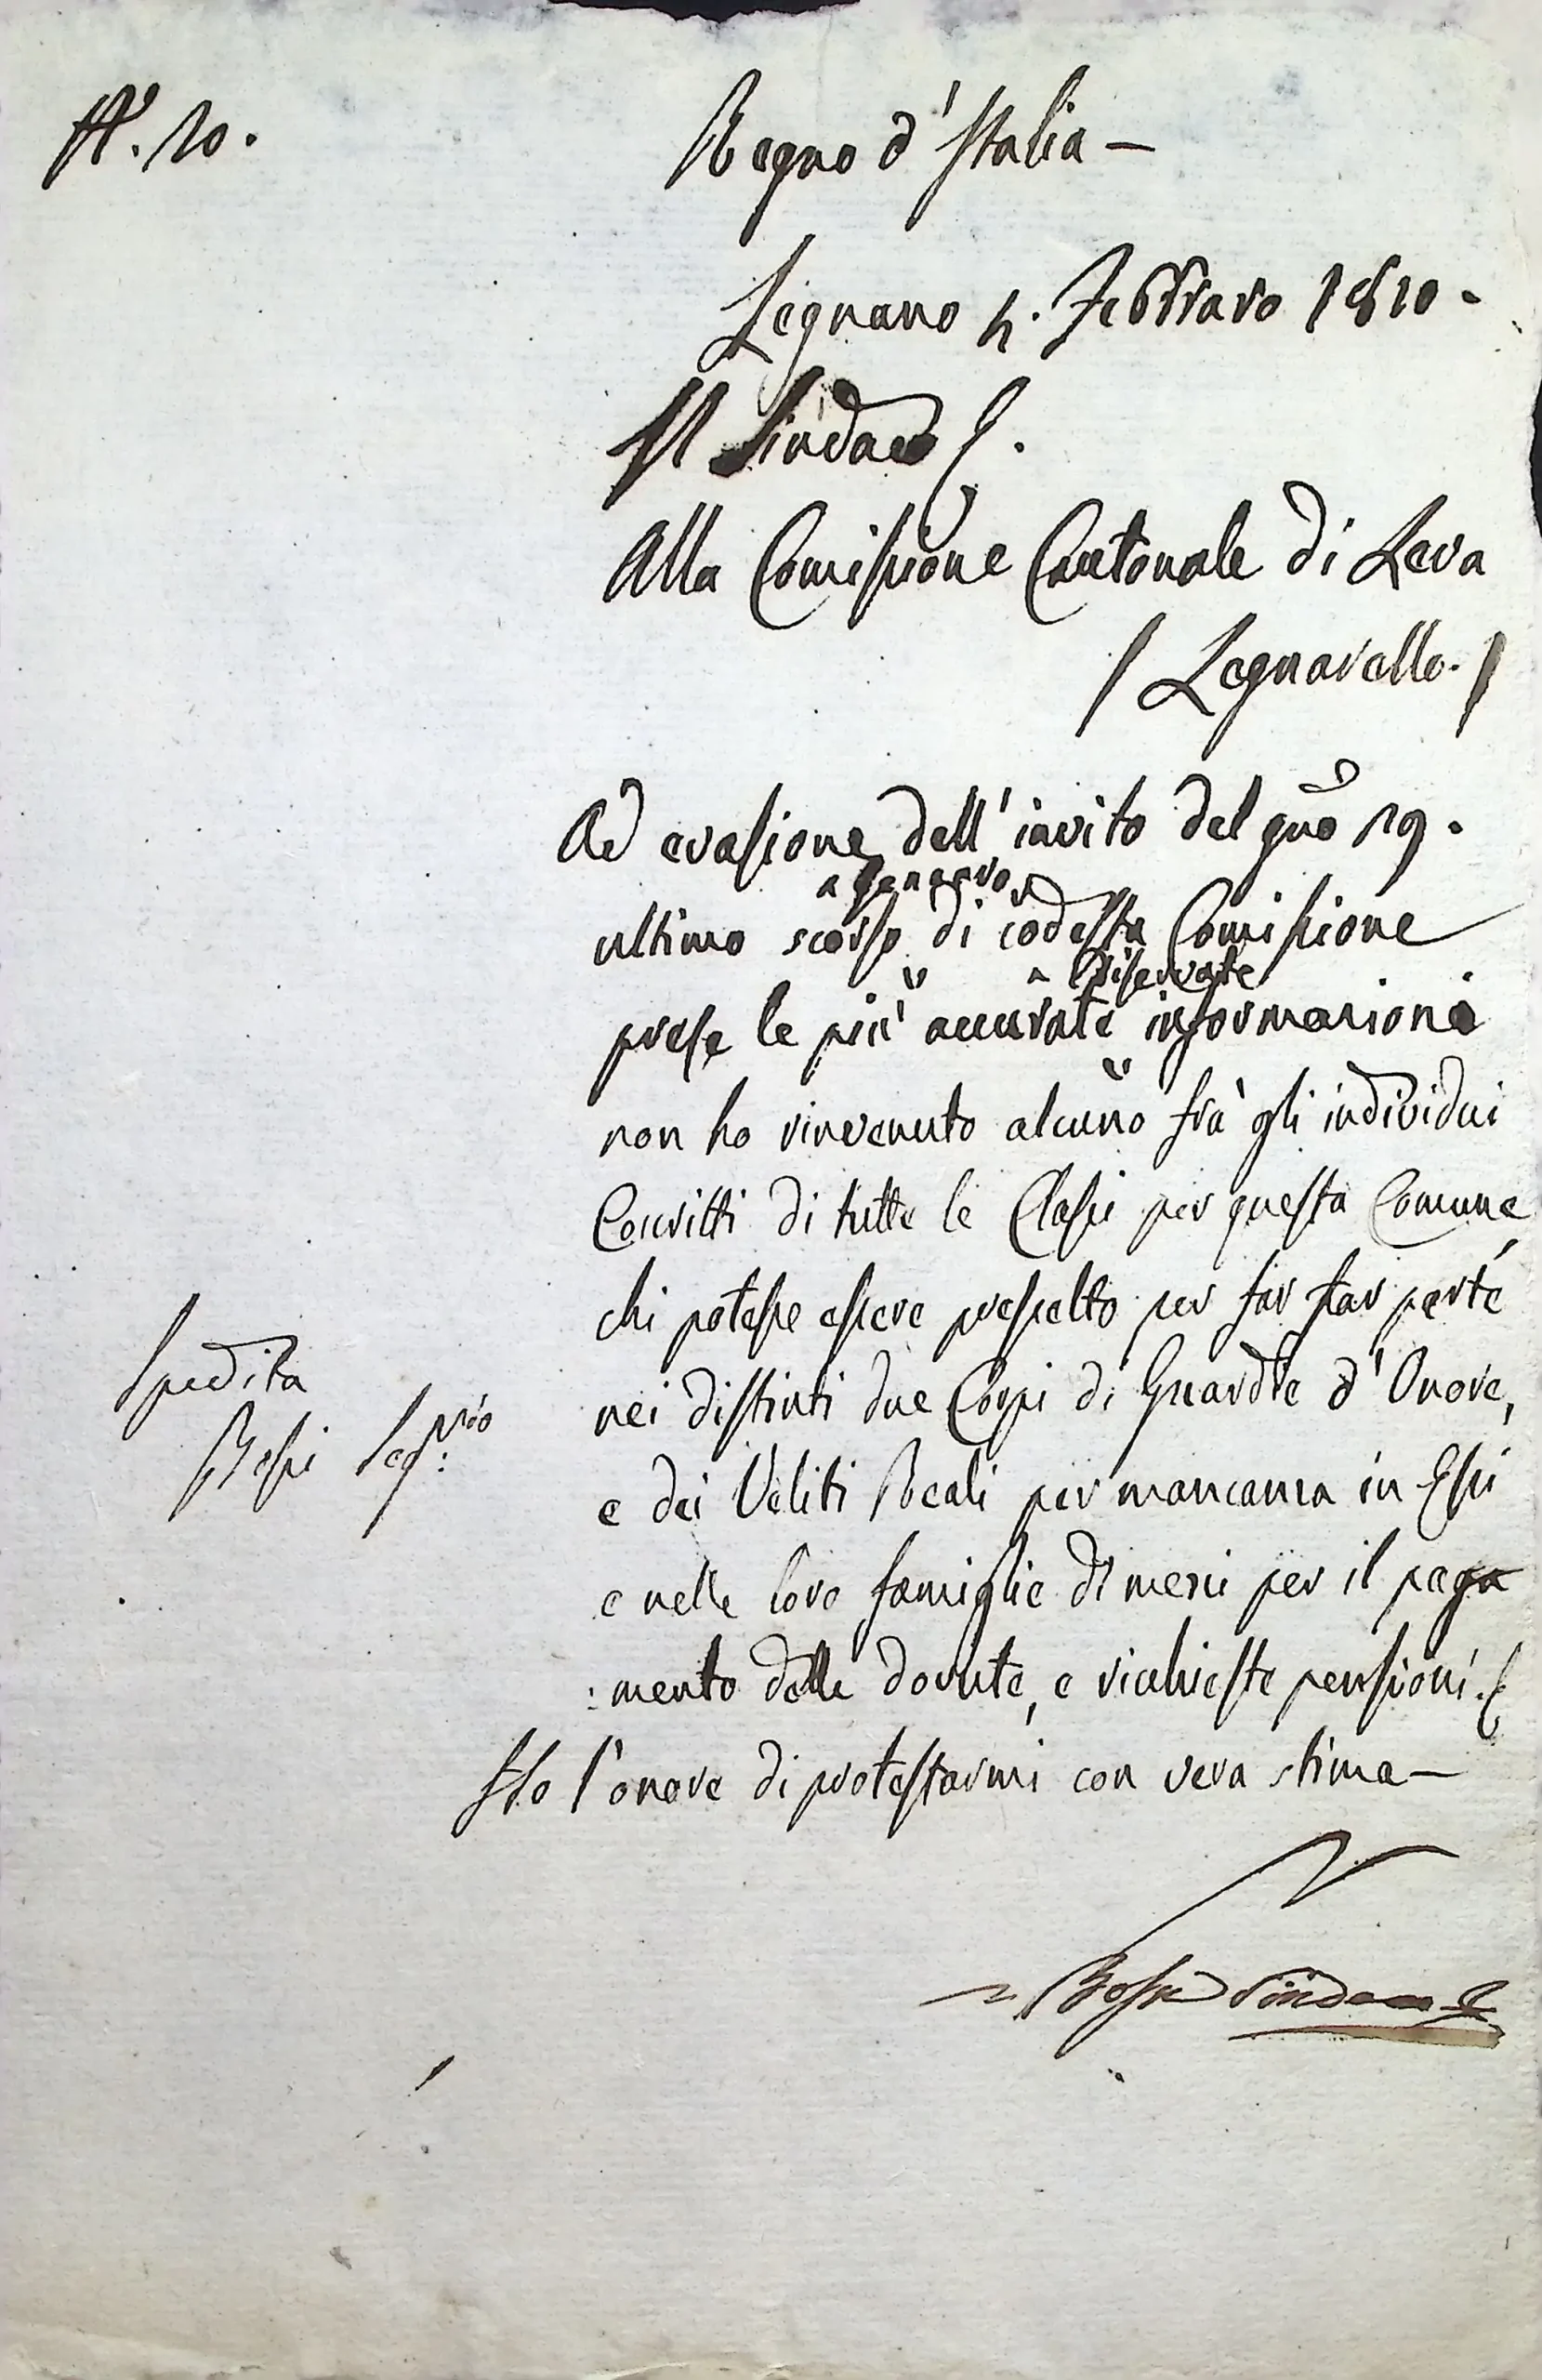 N.° 20.
Regno d'Italia —
Legnano 4. Febbraro 1810 -
Il Sindaco
Alla Comissione Cantonale di Leva
/ Legnarello. /
Ad evasione dell'invito del giorno 29.
^ Genaro
ultimo scorso di codesta Comissione
^ Riservate
prese le più accurate informazioni
non ho rinvenuto alcuno frà gli individui
Coscritti di tutte le Classi per questa Comune,
chi potesse essere prescelto per far far parte
nei distinti due Corpi di Guardie d'Onore,
e dei Veliti Reali per mancanza in Essi
e nelle loro famiglie di mezzi per il paga
:mento delle dovute, e richieste pensioni.
Spedita
Bossi Seg.rio
Ho l'onore di protestarmi con vera stima —
Bossi Sindaco